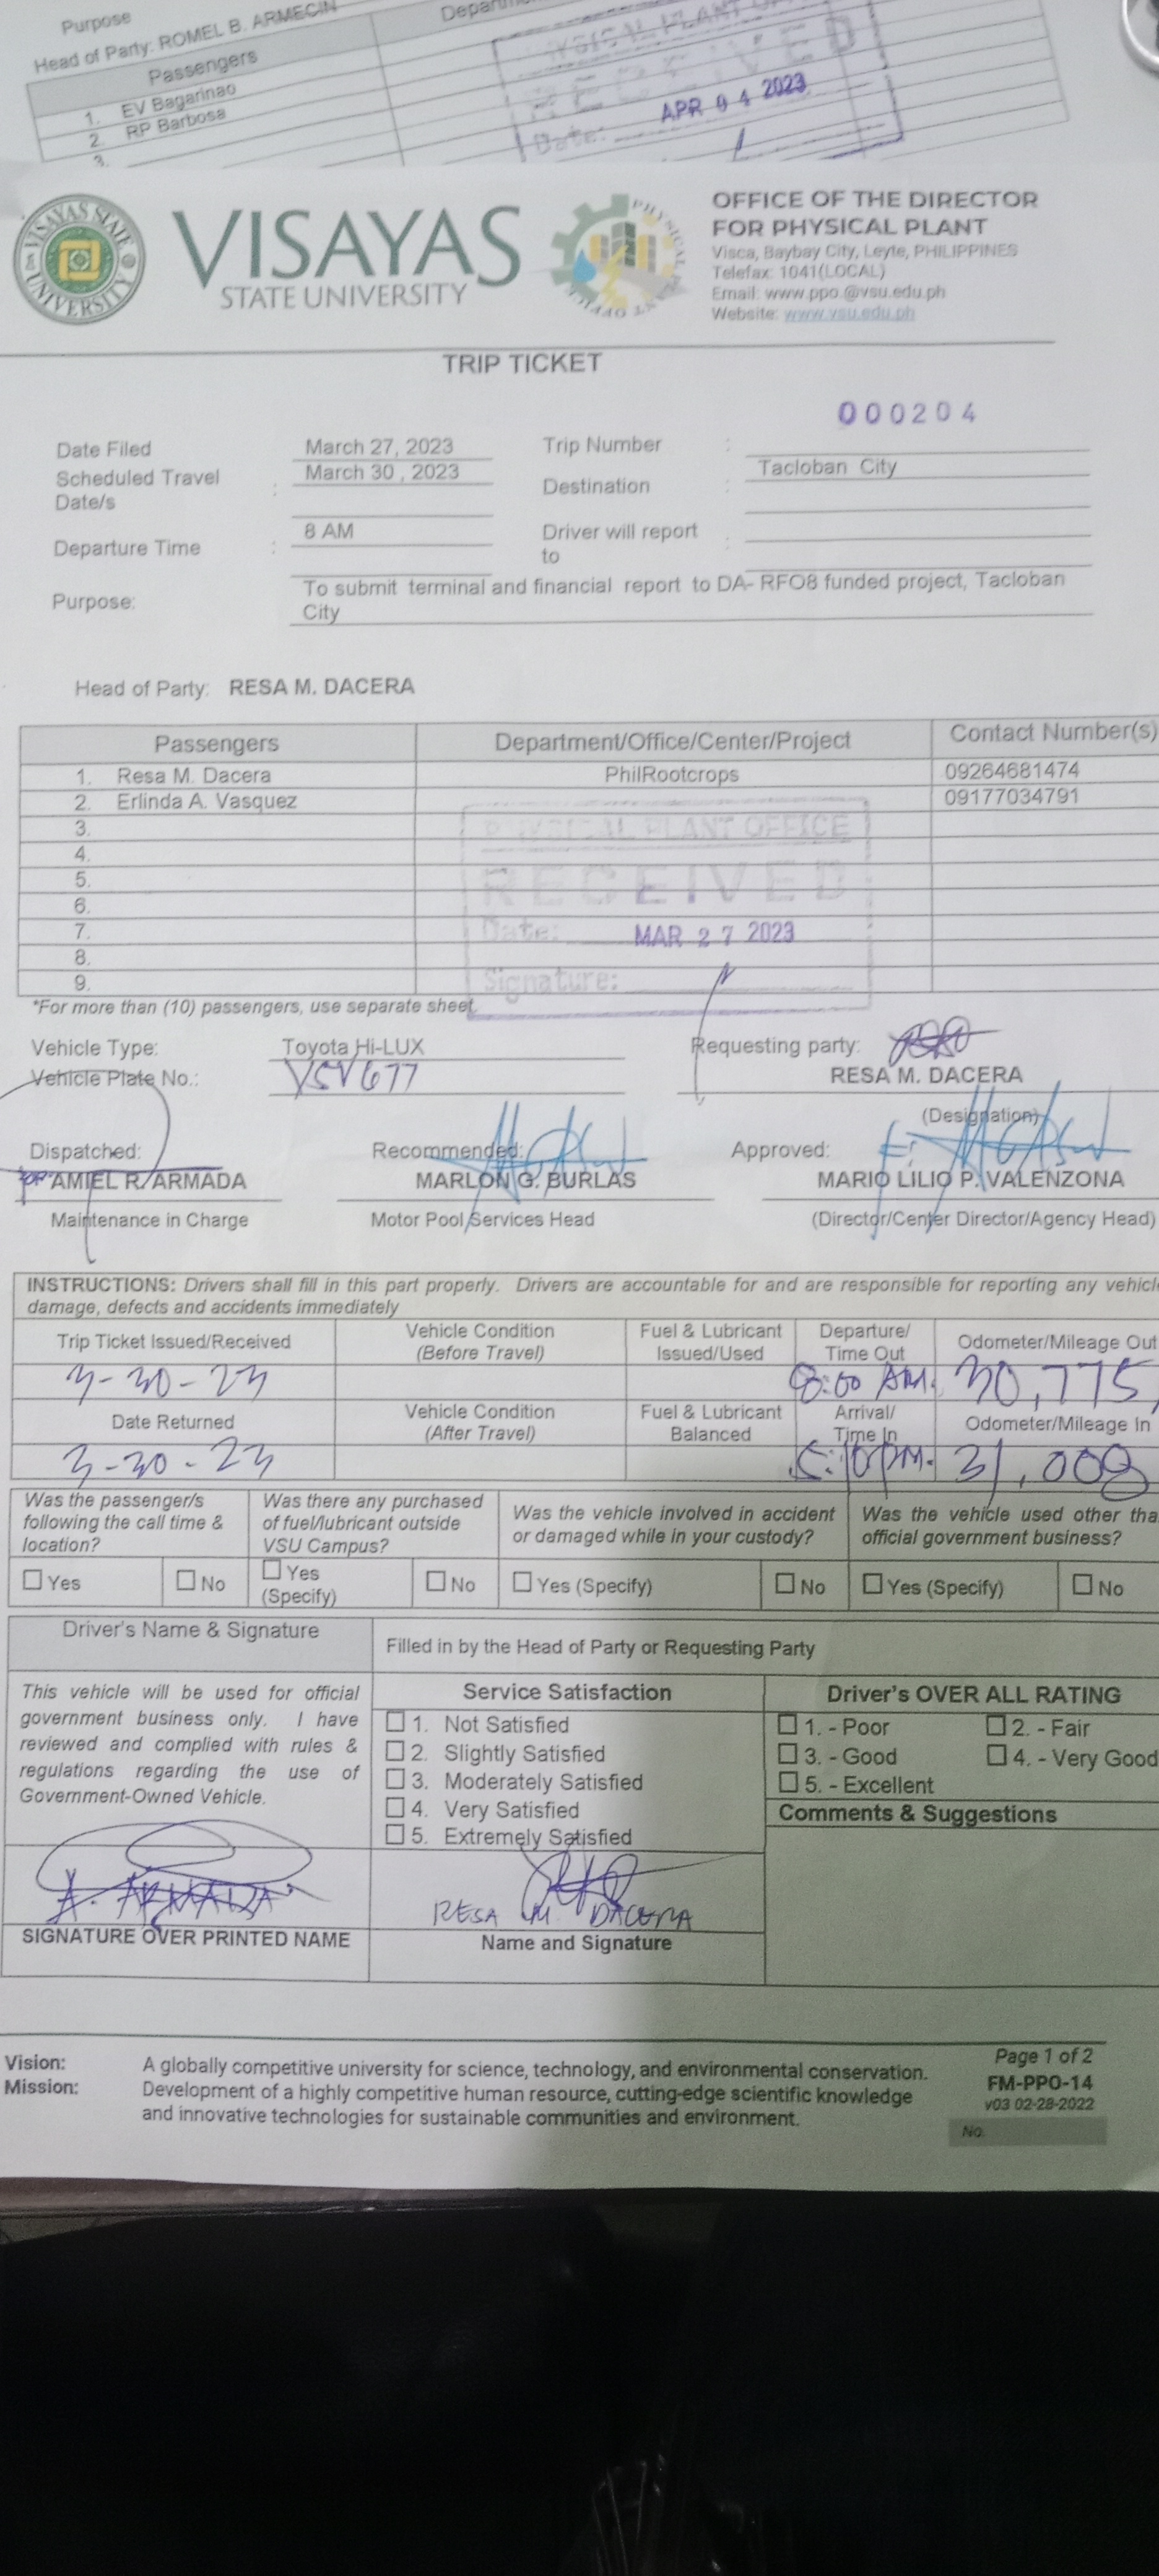 Purpose
Head of Party: ROMEL B. ARMECIN
Passengers
1. EV Bagarinao
2. RP Barbosa
3.
RECEIVED
Date: APR 04 2023
VISAYAS STATE UNIVERSITY
VISAYAS
STATE UNIVERSITY
OFFICE OF THE DIRECTOR
FOR PHYSICAL PLANT
Visca, Baybay City, Leyte, PHILIPPINES
Telefax: 1041(LOCAL)
Email: www.ppo.@vsu.edu.ph
Website: www.vsu.edu.ph
TRIP TICKET
000204
Date Filed March 27, 2023 Trip Number :
Scheduled Travel Date/s : March 30 , 2023 Destination : Tacloban City
Departure Time : 8 AM Driver will report to :
Purpose: To submit terminal and financial report to DA- RFO8 funded project, Tacloban
City
Head of Party: RESA M. DACERA
Passengers Department/Office/Center/Project Contact Number(s)
1. Resa M. Dacera PhilRootcrops 09264681474
2. Erlinda A. Vasquez 09177034791
3.
4.
5.
6.
7.
8.
9.
PHYSICAL PLANT OFFICE
RECEIVED
Date: MAR 27 2023
Signature:
*For more than (10) passengers, use separate sheet
Vehicle Type: Toyota Hi-LUX Requesting party:
Vehicle Plate No.: VSV677 RESA M. DACERA
(Designation)
Dispatched: Recommended: Approved:
for AMIEL R. ARMADA MARLON G. BURLAS MARIO LILIO P. VALENZONA
Maintenance in Charge Motor Pool Services Head (Director/Center Director/Agency Head)
INSTRUCTIONS: Drivers shall fill in this part properly. Drivers are accountable for and are responsible for reporting any vehicle
damage, defects and accidents immediately
Trip Ticket Issued/Received Vehicle Condition (Before Travel) Fuel & Lubricant Issued/Used Departure/ Time Out Odometer/Mileage Out
3-30-23 8:00 AM. 30,775
Date Returned Vehicle Condition (After Travel) Fuel & Lubricant Balanced Arrival/ Time In Odometer/Mileage In
3-30-23 5:10pm. 31,008
Was the passenger/s following the call time & location? Was there any purchased of fuel/lubricant outside VSU Campus? Was the vehicle involved in accident or damaged while in your custody? Was the vehicle used other tha official government business?
Yes No Yes (Specify) No Yes (Specify) No Yes (Specify) No
Driver's Name & Signature Filled in by the Head of Party or Requesting Party
This vehicle will be used for official
government business only. I have
reviewed and complied with rules &
regulations regarding the use of
Government-Owned Vehicle.
Service Satisfaction
1. Not Satisfied
2. Slightly Satisfied
3. Moderately Satisfied
4. Very Satisfied
5. Extremely Satisfied
Driver's OVER ALL RATING
1. - Poor 2. - Fair
3. - Good 4. - Very Good
5. - Excellent
Comments & Suggestions
A. ARMADA RESA M DACERA
SIGNATURE OVER PRINTED NAME Name and Signature
Vision: A globally competitive university for science, technology, and environmental conservation.
Mission: Development of a highly competitive human resource, cutting-edge scientific knowledge
and innovative technologies for sustainable communities and environment.
Page 1 of 2
FM-PPO-14
v03 02-28-2022
No.